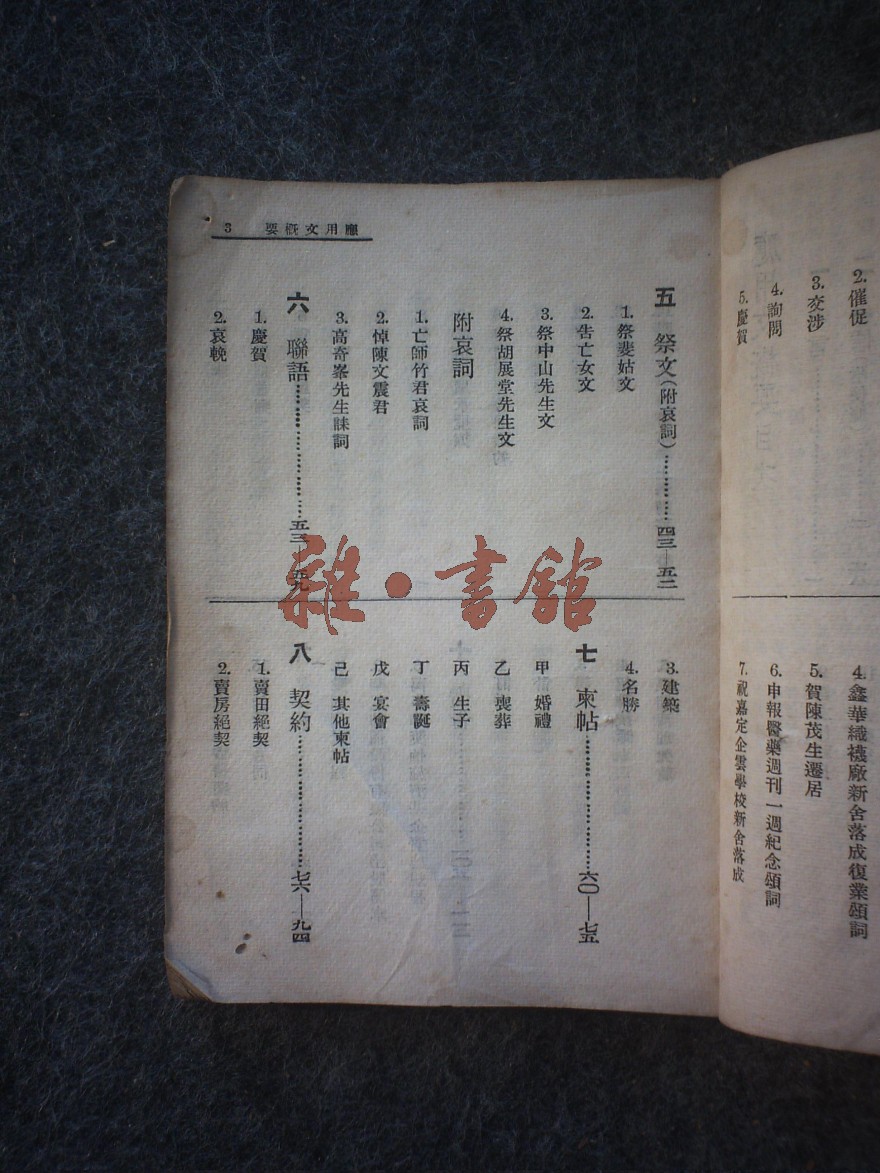 2. 催促
3. 交涉
4. 詢問
5. 慶賀
4. 鑫華織襪廠新舍落成復業頌詞
5. 賀陳茂生遷居
6. 申報醫藥週刊一週紀念頌詞
7. 祝嘉定企雲學校新舍落成
應用文概要 3
五 祭文(附哀詞)…………四三—五二
1. 祭斐姑文
2. 告亡女文
3. 祭中山先生文
4. 祭胡展堂先生文
附哀詞
1. 亡師竹君哀詞
2. 悼陳文震君
3. 高奇峯先生誄詞
六 聯語…………五三—五九
1. 慶賀
2. 哀輓
3. 建築
4. 名勝
七 柬帖…………六〇—七五
甲 婚禮
乙 喪葬
丙 生子
丁 壽誕
戊 宴會
己 其他柬帖
八 契約…………七六—九四
1. 賣田絕契
2. 賣房絕契
雜·書館